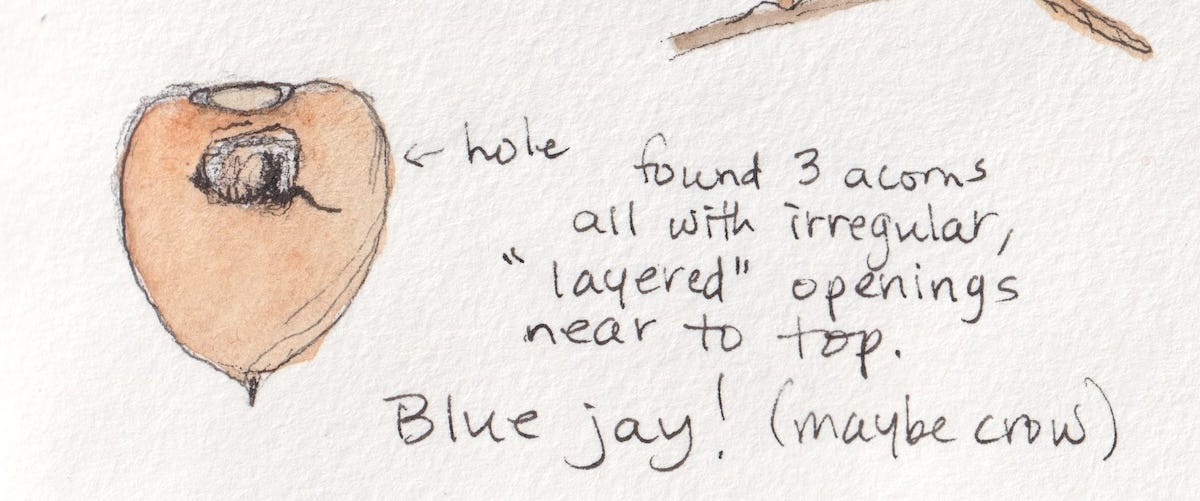 ← hole
found 3 acorns
all with irregular,
"layered" openings
near to top.
Blue jay! (maybe crow)